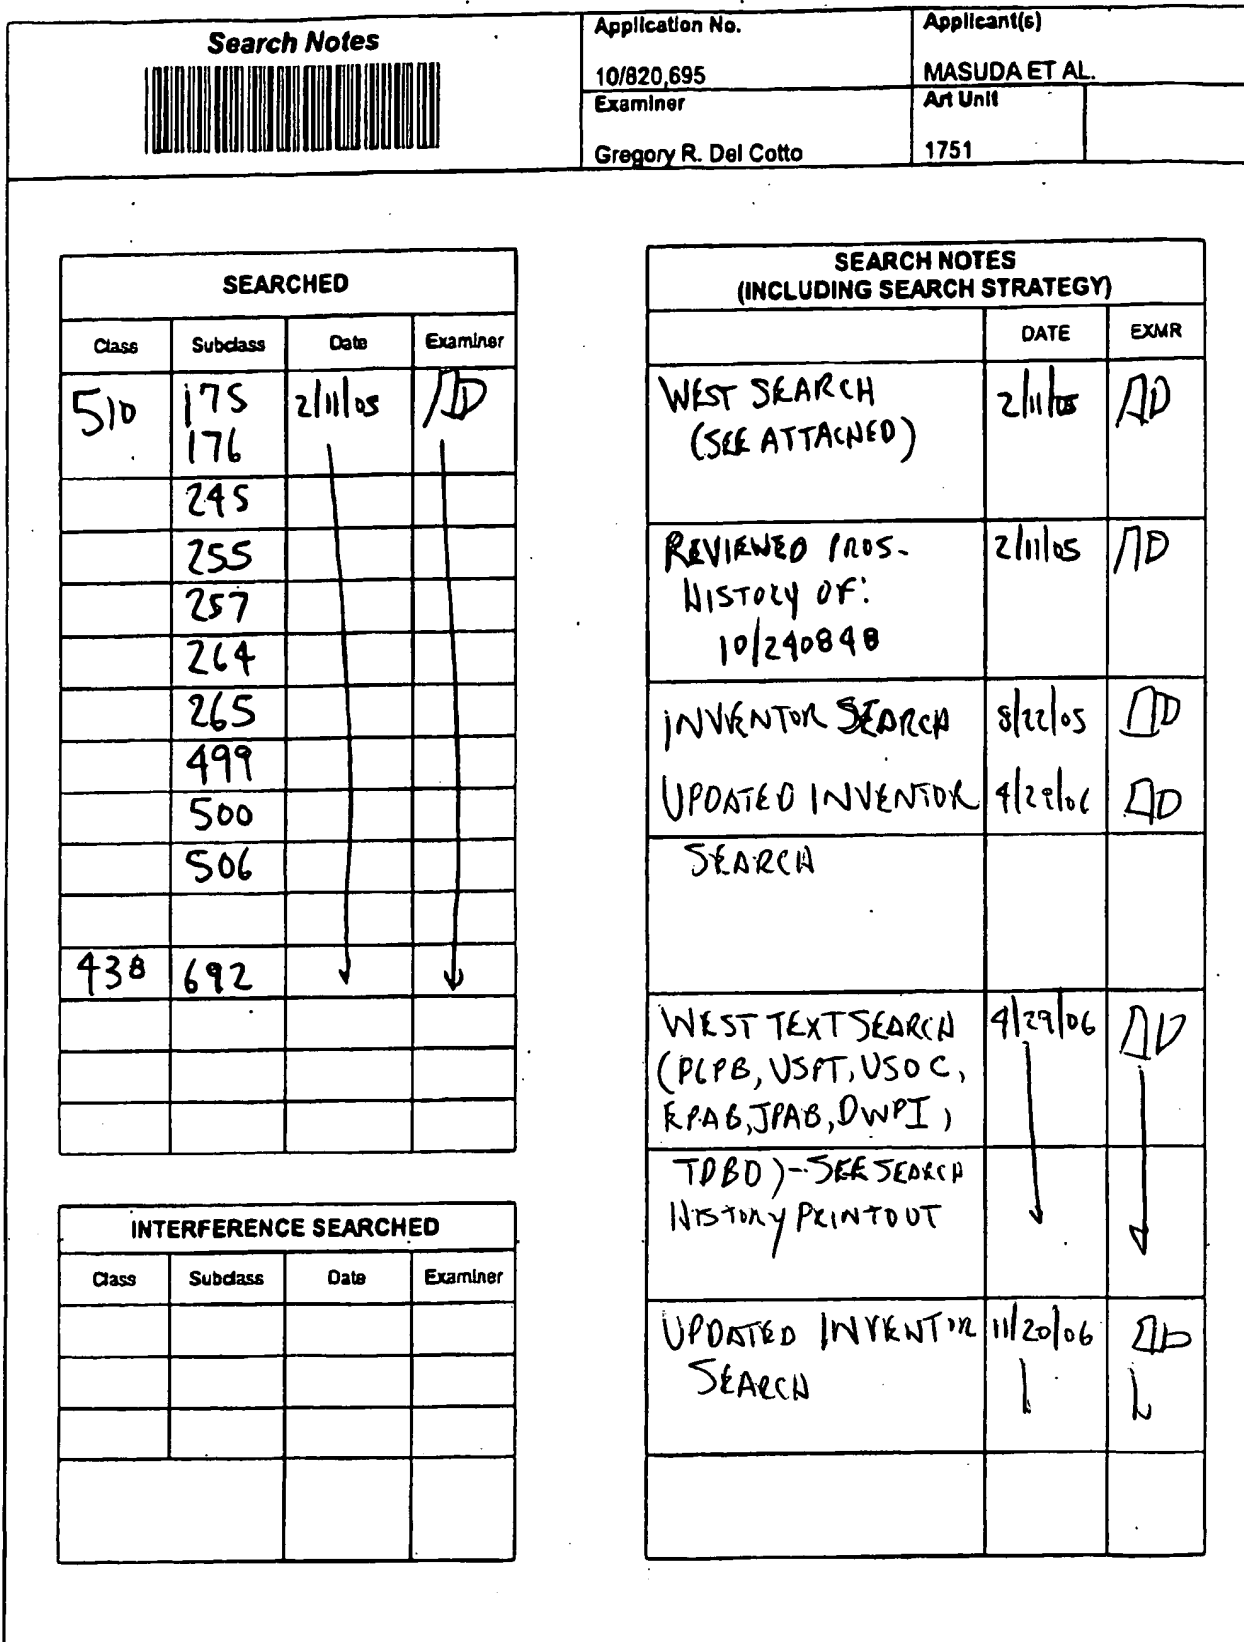 Search Notes
Application No.
Applicant(s)
10/820,695
MASUDA ET AL.
Examiner
Art Unit
Gregory R. Del Cotto
1751
SEARCHED
Class Subclass Date Examiner
510 175 2/11/05
176
245
255
257
264
265
499
500
506
438 692
INTERFERENCE SEARCHED
Class Subclass Date Examiner
SEARCH NOTES
(INCLUDING SEARCH STRATEGY)
DATE EXMR
WEST SEARCH 2/11/05
(SEE ATTACHED)
REVIEWED PROS. 2/11/05
HISTORY OF:
10/240848
INVENTOR SEARCH 8/22/05
UPDATED INVENTOR 4/29/06
SEARCH
WEST TEXT SEARCH 4/29/06
(PGPB, USPT, USOC,
EPAB, JPAB, DWPI,
TDBD) - SEE SEARCH
HISTORY PRINTOUT
UPDATED INVENTOR 11/20/06
SEARCH